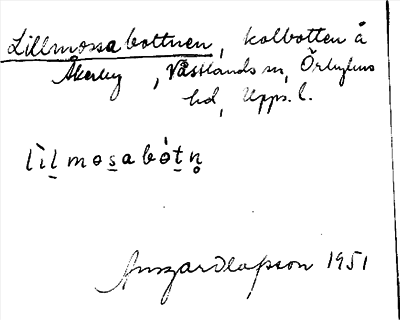 Lillmossabottnen, kolbotten å
Åkerby, Västlands sn, Örbyhus
hd, Upps. l.
lìl̠mos̠abót̠n̥
Ansgar Olofsson 1951